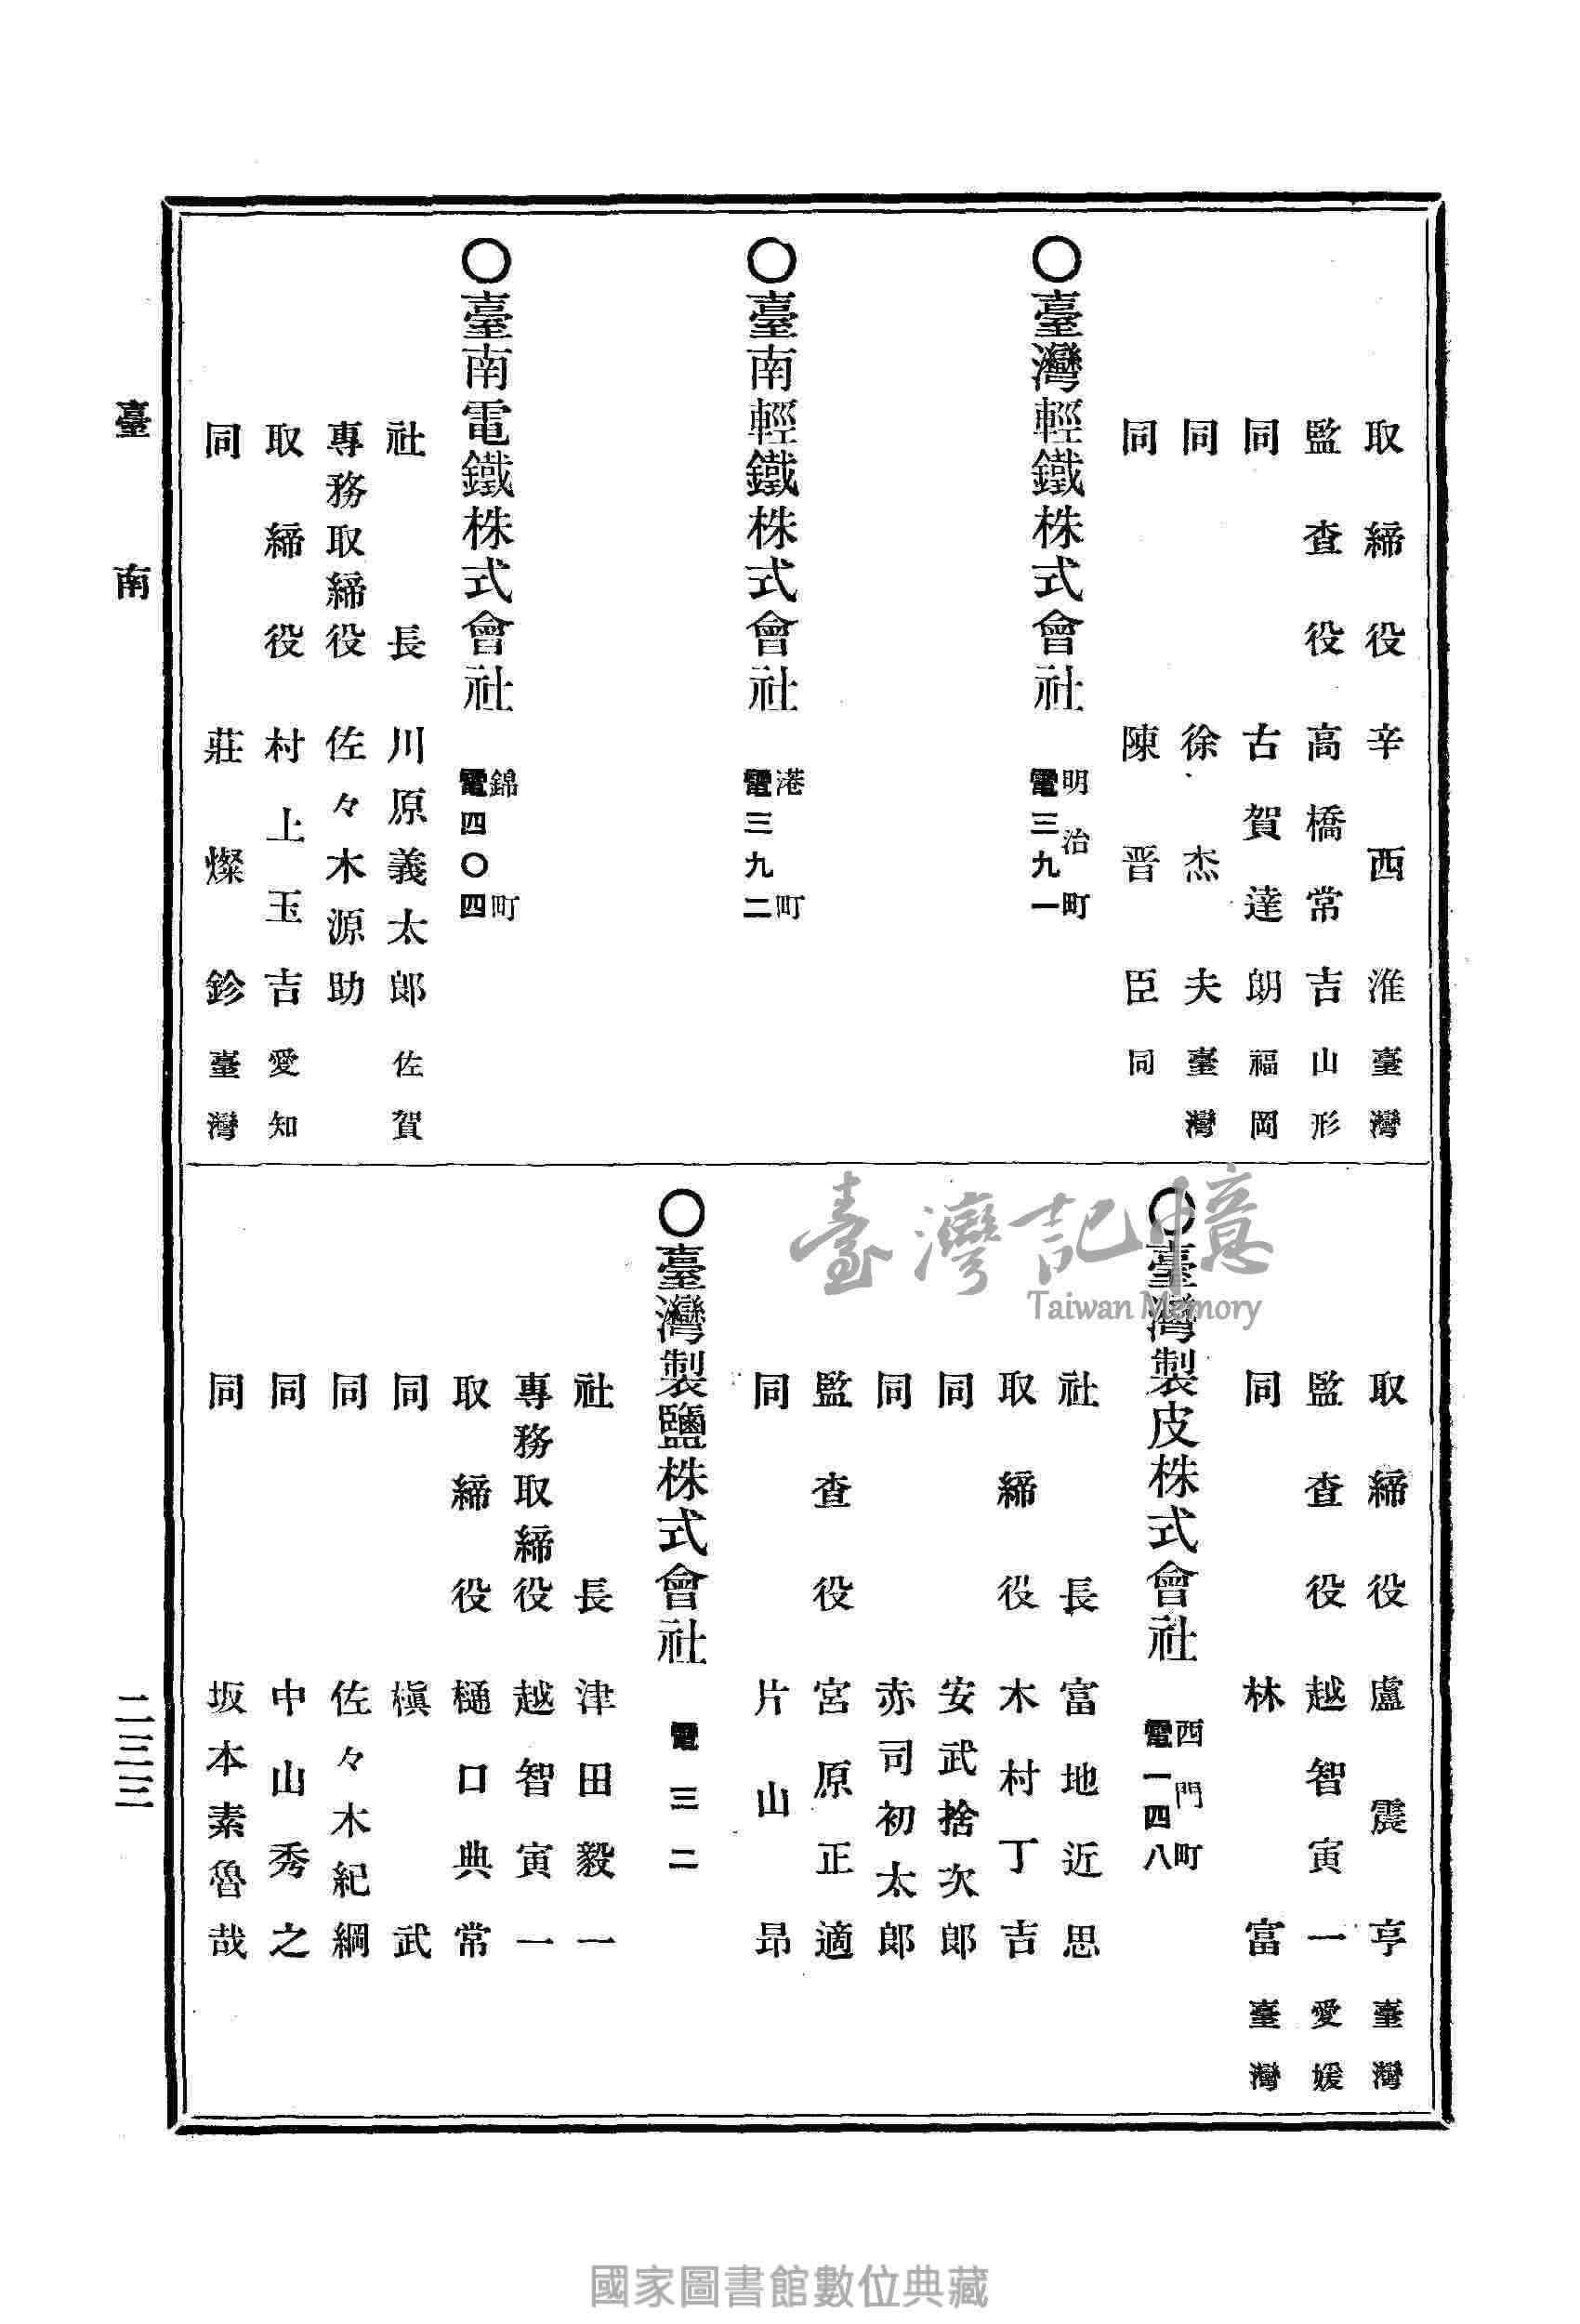 取締役 辛西淮 臺灣
監査役 高橋常吉 山形
同 古賀達朗 福岡
同 徐杰夫 臺灣
同 陳晋臣 同
〇臺灣輕鐵株式會社 明治町 電三九一
〇臺南輕鐵株式會社 港町 電三九二
〇臺南電鐵株式會社 錦町 電四〇四
社長 川原義太郎 佐賀
專務取締役 佐々木源助
取締役 村上玉吉 愛知
同 莊燦鉁 臺灣
取締役 盧震亨 臺灣
監査役 越智寅一 愛媛
同 林富 臺灣
〇臺灣製皮株式會社 西門町 電一四八
社長 富地近思
取締役 木村丁吉
同 安武捨次郎
同 赤司初太郎
監査役 宮原正適
同 片山昂
〇臺灣製鹽株式會社 電三二
社長 津田毅一
專務取締役 越智寅一
取締役 樋口典常
同 槇武
同 佐々木紀綱
同 中山秀之
同 坂本素魯哉
臺南
二三三
臺灣記憶
Taiwan Memory
國家圖書館數位典藏